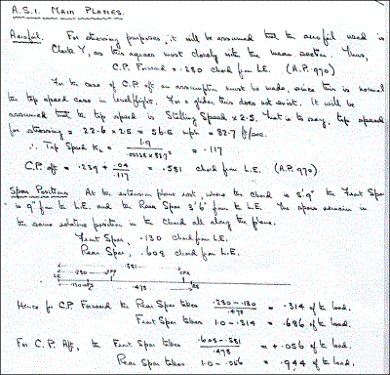 A.S.1. MAIN PLANES.
Aerofoil. For stressing purposes, it will be assumed that the aerofoil used is
Clark Y, as this agrees most closely with the mean section. Thus,
C.P. Forward = .280 chord from L.E. (A.P. 970)
For the case of C.P. aft an assumption must be made, since this is normal
the top speed case in level flight. For a glider this does not exist. It will be
assumed that the top speed is Stalling Speed x 2.5. That is to say, top speed
for stressing = 22.6 x 2.5 = 56.5 mph = 82.7 f/sec.
∴ Top Speed KL = 1.9 / .00238 x 82.7² = .117
C.P. aft = .239 + .04/.117 = .581 chord from L.E. (A.P. 970)
Spar Positions At the extension plane root, where the chord is 5'9" the Front Spar
is 9" from the L.E. and the Rear Spar 3'6" from the L.E. The spars remain in
the same relative position in the chord all along the plane.
Front Spar, .130 chord from L.E.
Rear Spar, .608 chord from L.E.
.581
LE .280 CPF CPA
.130 FS .478 RS
Hence for C.P. Forward the Rear Spar takes .280-.130 / .478 = .314 of the load.
Front Spar takes 1.0-.314 = .686 of the load.
For C.P. Aft, the Front Spar takes .608-.581 / .478 = +.056 of the load.
Rear Spar takes 1.0-.056 = .944 of the load.